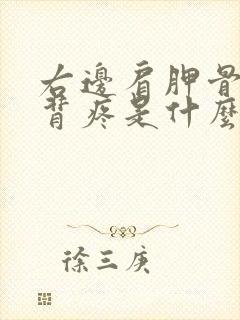 右邊肩胛骨
背疼是什麼
徐三庚